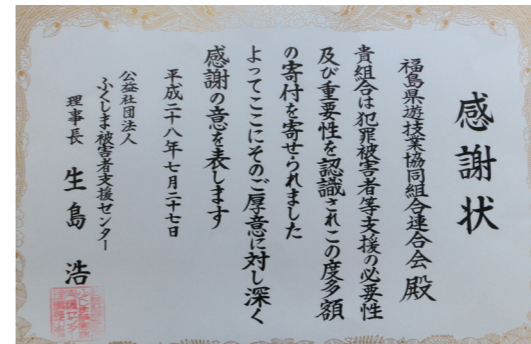 感謝状
福島県遊技業協同組合連合会殿
貴組合は犯罪被害者等支援の必要性
及び重要性を認識されこの度多額
の寄付を寄せられました
よってここにそのご厚意に対し深く
感謝の意を表します
平成二十八年七月二十七日
公益社団法人
ふくしま被害者支援センター
理事長 生島 浩